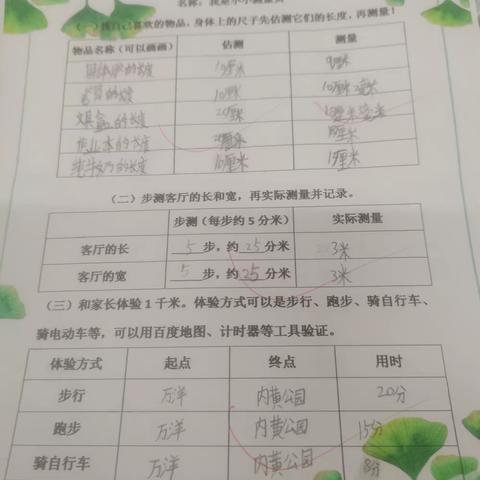 名称：我是小小测量员
（一）找自己喜欢的物品，身体上的尺子先估测它们的长度，再测量！
物品名称（可以画画） 估测 测量
固体胶的长度 10厘米 9厘米
的长度 10厘米 10厘米
文具盒的长度 20厘米
作业本的长度 20厘米
纯牛奶的长度 10厘米
（二）步测客厅的长和宽，再实际测量并记录。
步测（每步约5分米） 实际测量
客厅的长 5步，约25分米 3米
客厅的宽 5步，约25分米 3米
（三）和家长体验1千米。体验方式可以是步行、跑步、骑自行车、
骑电动车等，可以用百度地图、计时器等工具验证。
体验方式 起点 终点 用时
步行 万洋 内黄公园 20分
跑步 万洋 内黄公园 15分
骑自行车 万洋 内黄公园 8分